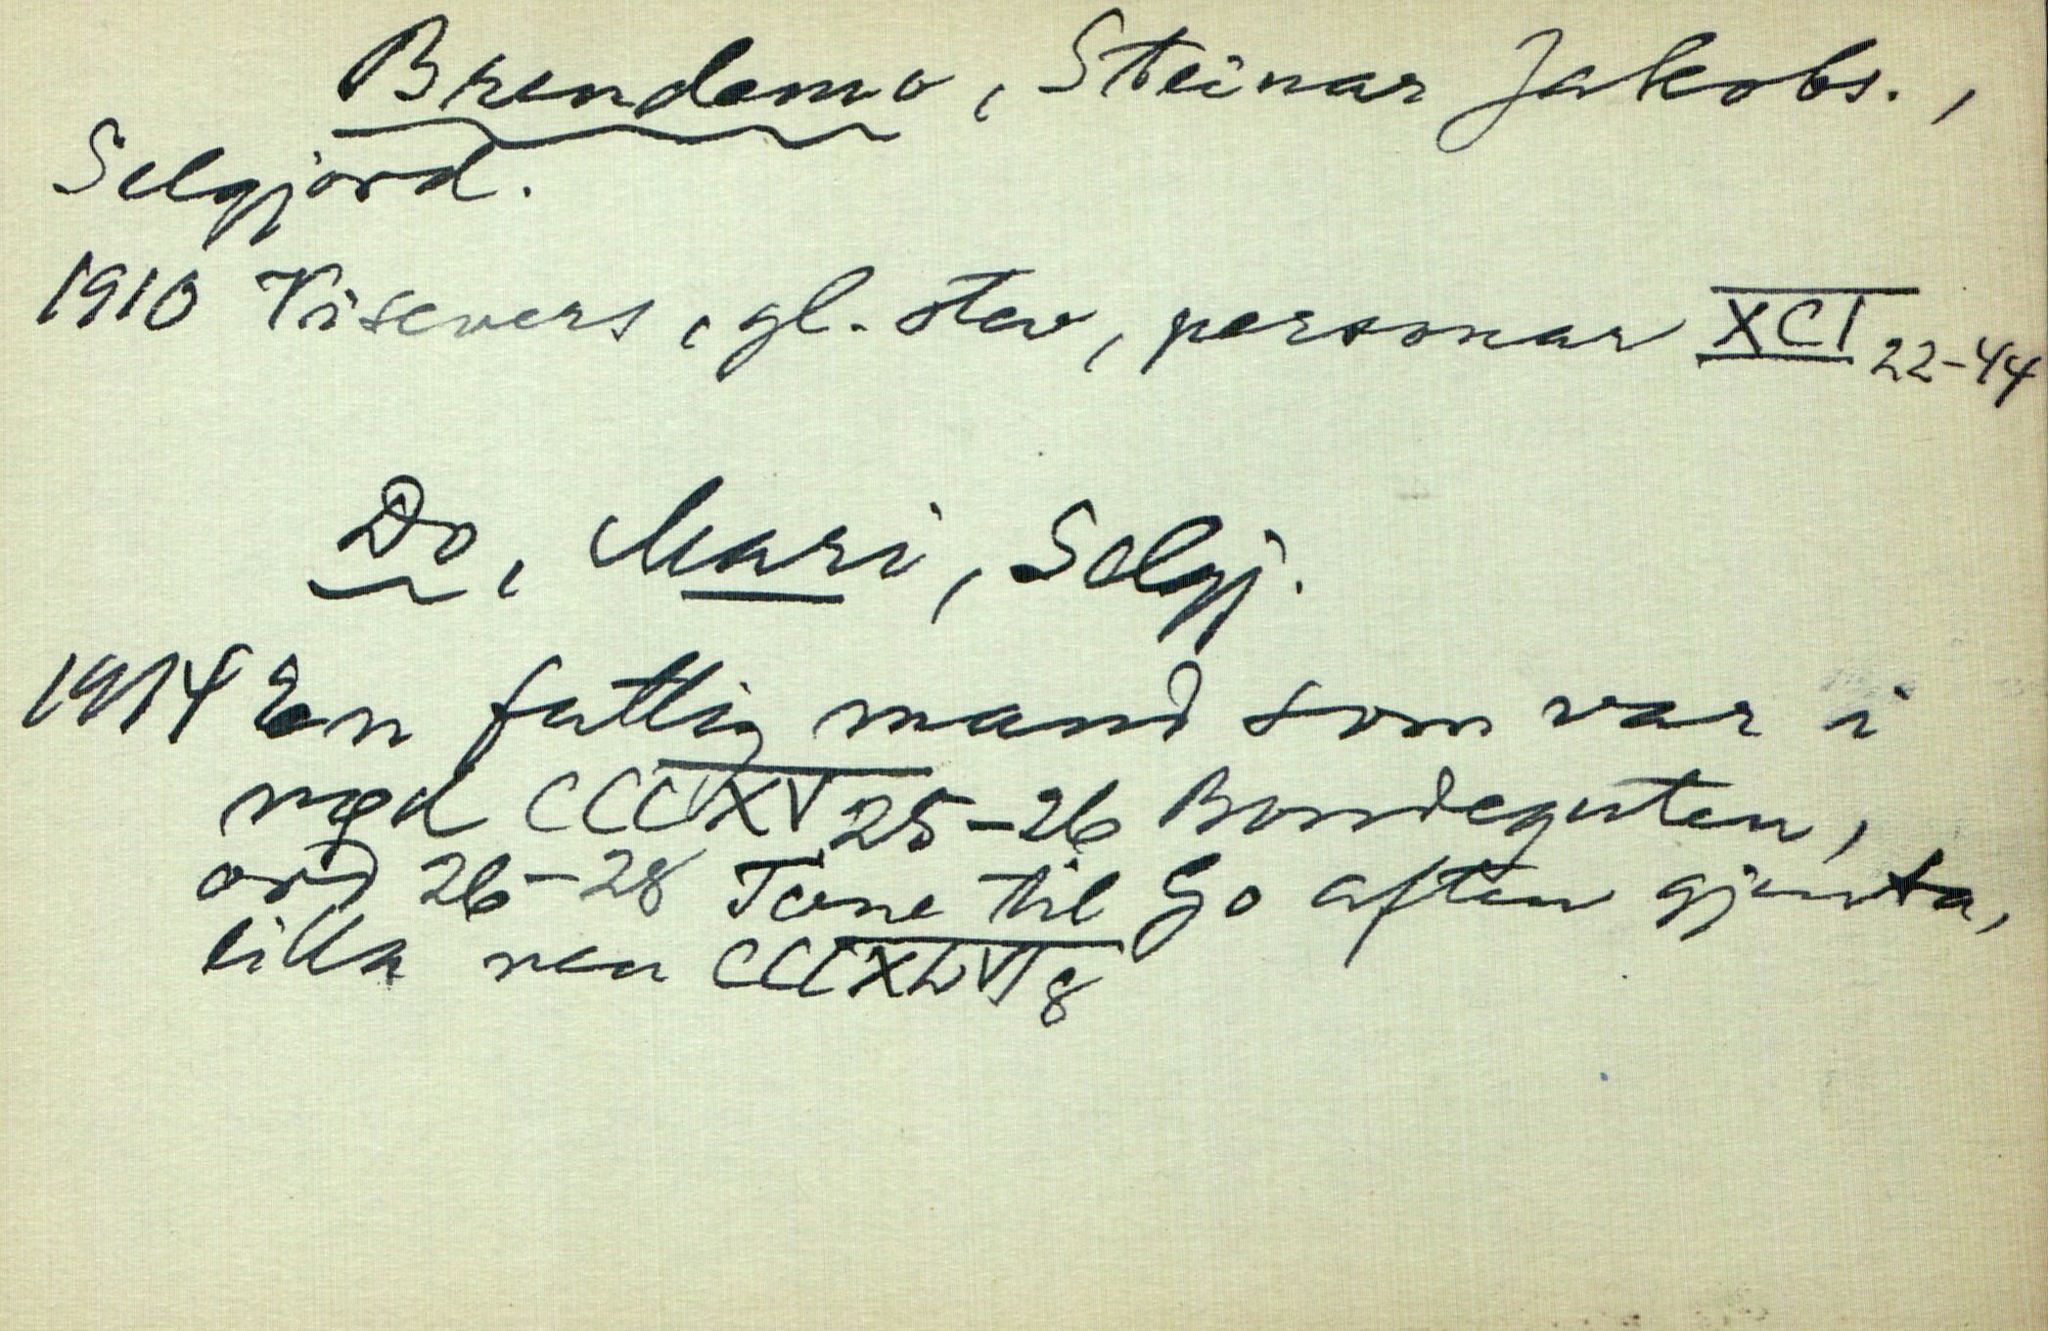 Brendemo, Steinar Jakobs.,
Selgjord.
1910 Visevers, gl. stev, personar XCI 22-44
Do, Mari, Selgj.
1914 En fattig mand som var i
CCCXV 25-26 Bondeguten,
ord 26-28 Tone til Go aften gjenta,
lilla ven CCCXLVI 8